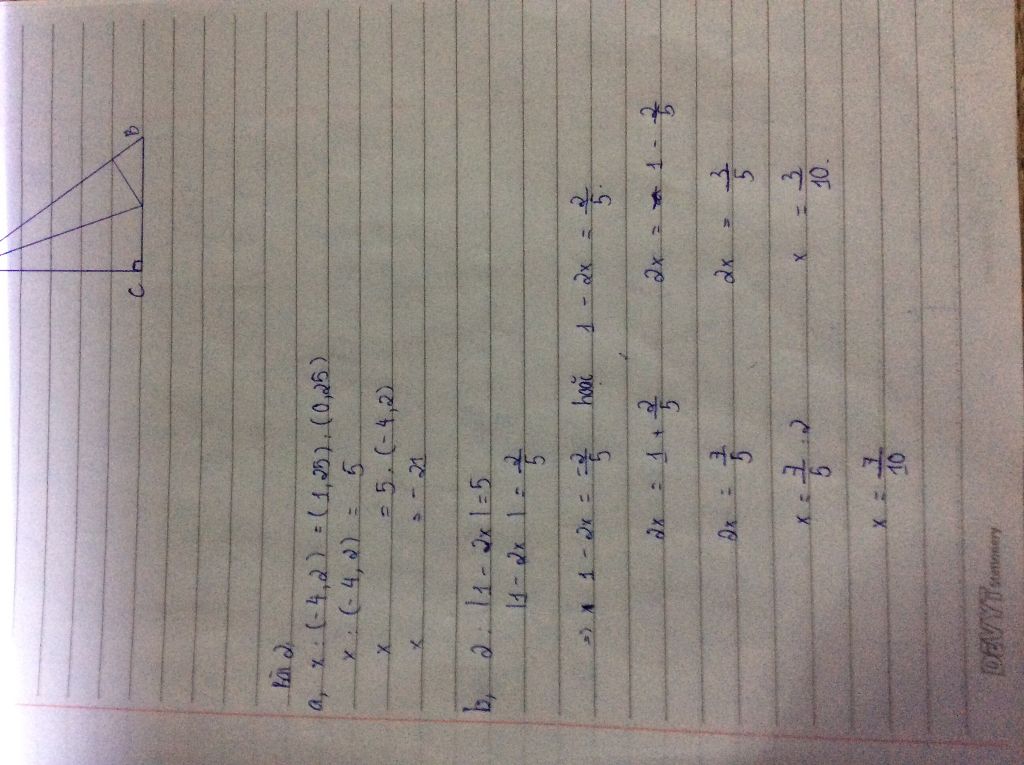 B
C
Bài 2
a, x : (-4,2) = (1,25) : (0,25)
x : (-4,2) = 5
x = 5 . (-4,2)
x = -21
b, 2 : |1 - 2x| = 5
|1 - 2x| = 2/5
=> 1 - 2x = -2/5 hoặc 1 - 2x = 2/5.
2x = 1 + 2/5 2x = 1 - 2/5
2x = 7/5 2x = 3/5
x = 7/5 : 2 x = 3/10.
x = 7/10
DEVYT Stationery